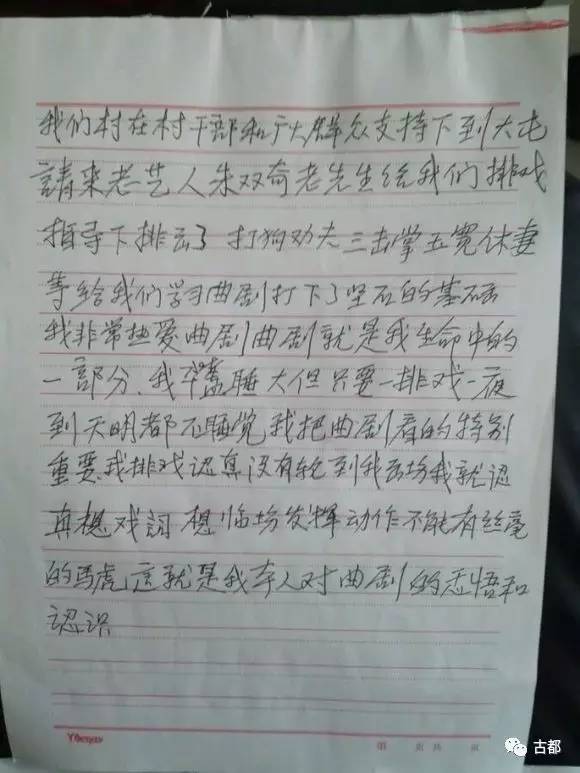 我们村在村干部和广大群众支持下到大屯
請来老艺人朱双奇老先生给我们排戏
指导下排出了 打狗劝夫 三击掌 五宽休妻
等给我们学习曲剧打下了坚石的基础
我非常热爱曲剧曲剧就是我生命中的
一部分、我本瞌睡大但只要一排戏一夜
到天明都不睡觉我把曲剧看的特别
重要、我排戏認真没有轮到我出场我就認
真想戏詞、想临场发挥动作不能有丝毫
的马虎这就是我本人对曲剧的悉悟和
認识
Yilenguo
页共 页
古都